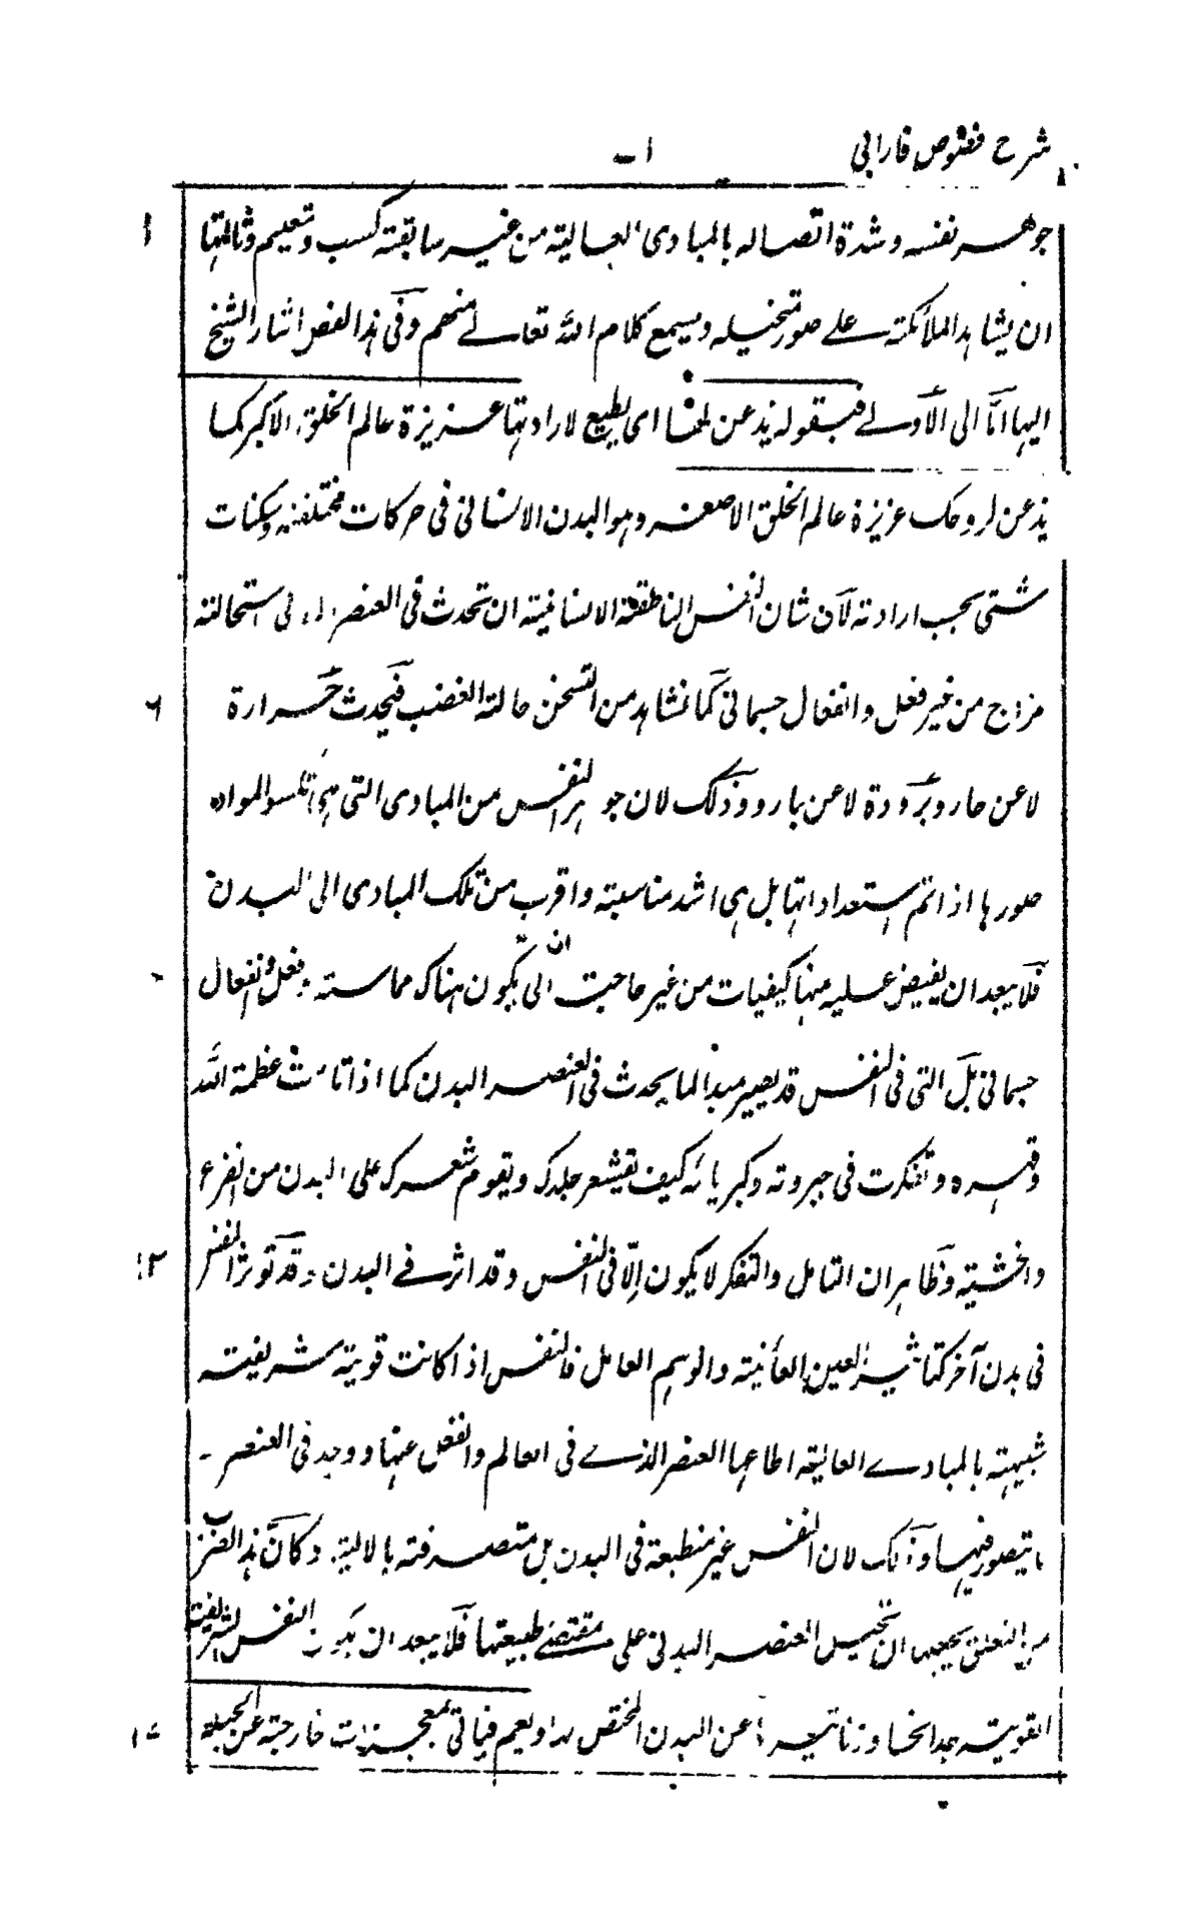 شرح فصوص فارابی
جوهر نفسه وشدة اتصاله بالمبادی العالیة من غیر سابقة کسب وتعلیم وثالثتها
ان یشاهد الملائکة علے صور متخیله ویسمع کلام الله تعالے منهم وفی هذا الفص اشار الشیخ
الیها امّا الی الاولے فبقوله یذعن لها ای یطیع لارادتها عزیزة عالم الخلق الاکبر کما
یذعن لروحک عزیزة عالم الخلق الاصغر وهو البدن الانسانی فی حرکات مختلفة وسکنات
شتی بحسب ارادته لان شان النفس الناطقة الانسانیة ان تحدث فی العنصر استحالة
مزاج من غیر فعل وانفعال جسمانی کما نشاهد من التسخن حالة الغضب فیحدث حرارة
لا عن حار وبرودة لا عن بارد وذلک لان جوهر النفس من المبادی التی هی تلبس المواد
صورها اذا تم استعداداتها بل هی اشد مناسبة واقرب من تلک المبادی الی البدن
فلا یبعد ان یفیض علیه منها کیفیات من غیر حاجة الی ان یکون هناک مماسة وفعل وانفعال
جسمانی بل التی فی النفس قد یصیر مبدأ لما یحدث فی العنصر البدن کما اذا تاملت عظمة الله
وقهره وتفکرت فی جبروته وکبریائه کیف یقشعر جلدک ویقوم شعرک علی البدن من الفزع
والخشیة وظاهر ان التامل والتفکر لا یکون الّا فی النفس وقد اثر فے البدن وقد تؤثر النفس
فی بدن آخر کتاثیر العین العائنیة والوهم العامل فالنفس اذا کانت قویة شریفة
شبیهة بالمبادے العالیة اطاعها العنصر الذے فی العالم وانفعل عنها ووجد فی العنصر
ما یتصور فیها وذلک لان النفس غیر منطبعة فی البدن بل متصرفة بالالیة وکانّ هذا الضرب
من التعلق یجعلها ان تحیل العنصر البدنی علی مقتضے طبیعتها فلا یبعد ان یکون النفس الشریفة
القویة جدا تجاوز تاثیرها عن البدن المختص بها ویعم فیاتی بمعجزات خارجة عن الجبلة